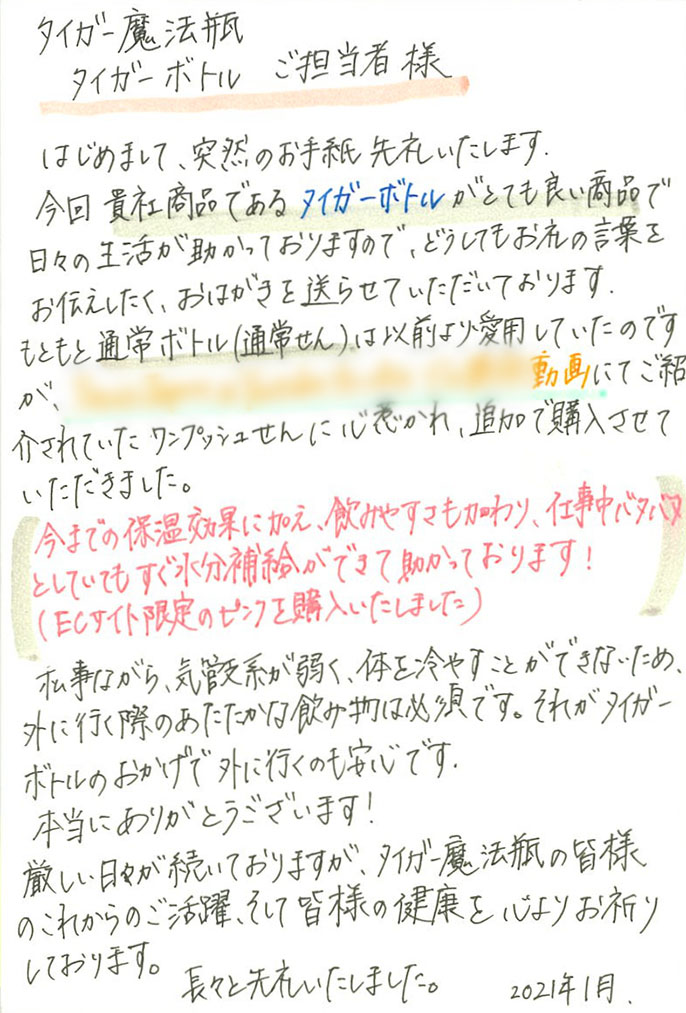 タイガー魔法瓶
タイガーボトル ご担当者様
はじめまして、突然のお手紙失礼いたします.
今回貴社商品であるタイガーボトルがとても良い商品で
日々の生活が助かっておりますので、どうしてもお礼の言葉を
お伝えしたく、おはがきを送らせていただいております.
もともと通常ボトル(通常せん)は以前より愛用していたのです
が、動画にてご紹
介されていたワンプッシュせんに心惹かれ、追加で購入させて
いただきました。
今までの保温効果に加え、飲みやすさも加わり、仕事中バタバタ
としていてもすぐ水分補給ができて助かっております!
(ECサイト限定のピンクを購入いたしました)
私事ながら、気管支系が弱く、体を冷やすことができないため、
外に行く際のあたたかな飲み物は必須です。それがタイガー
ボトルのおかげで外に行くのも安心です.
本当にありがとうございます!
厳しい日々が続いておりますが、タイガー魔法瓶の皆様
のこれからのご活躍、そして皆様の健康を心よりお祈り
しております。
長々と失礼いたしました。 2021年1月.